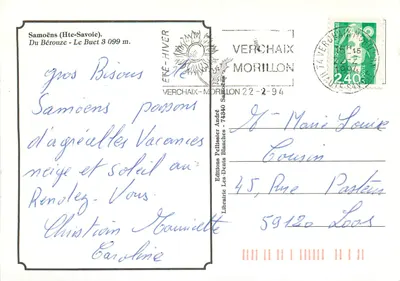 Samoëns (Hte-Savoie).
Du Bérouze - Le Buet 3 099 m.
Gros Bisous de
Samoens passons
d'agréables Vacances
neige et soleil au
Rendez-Vous
Christian Mauricette
Caroline
ETE-HIVER
VERCHAIX
MORILLON
VERCHAIX-MORILLON 22-2-94
2,40
Editions Pellissier André
Librairie Les Dents Blanches - 74340 Samoëns
Mme Marie Louise
Cousin
45, Rue Pasteur
59120 Loos